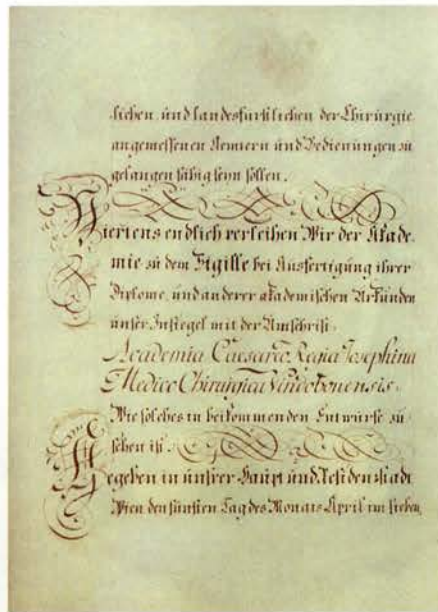 lichen und landesfürstlichen der Chirurgie
angemessenen Aemtern und Bedienungen zu
gelangen fähig seyn sollen.
Viertens endlich verleihen Wir der Akade-
mie zu dem Sigille bei Ausfertigung ihrer
Diplome und anderer akademischen Urkunden
unser Insiegel mit der Umschrift.
Academia Caesareo Regia Josephina
Medico Chirurgica Vindobonensis.
Wie solches in beikommenden Entwurfe zu
sehen ist.
Gegeben in unsrer Haupt und Residenzstadt
Wien den fünften Tag des Monats April im sieben